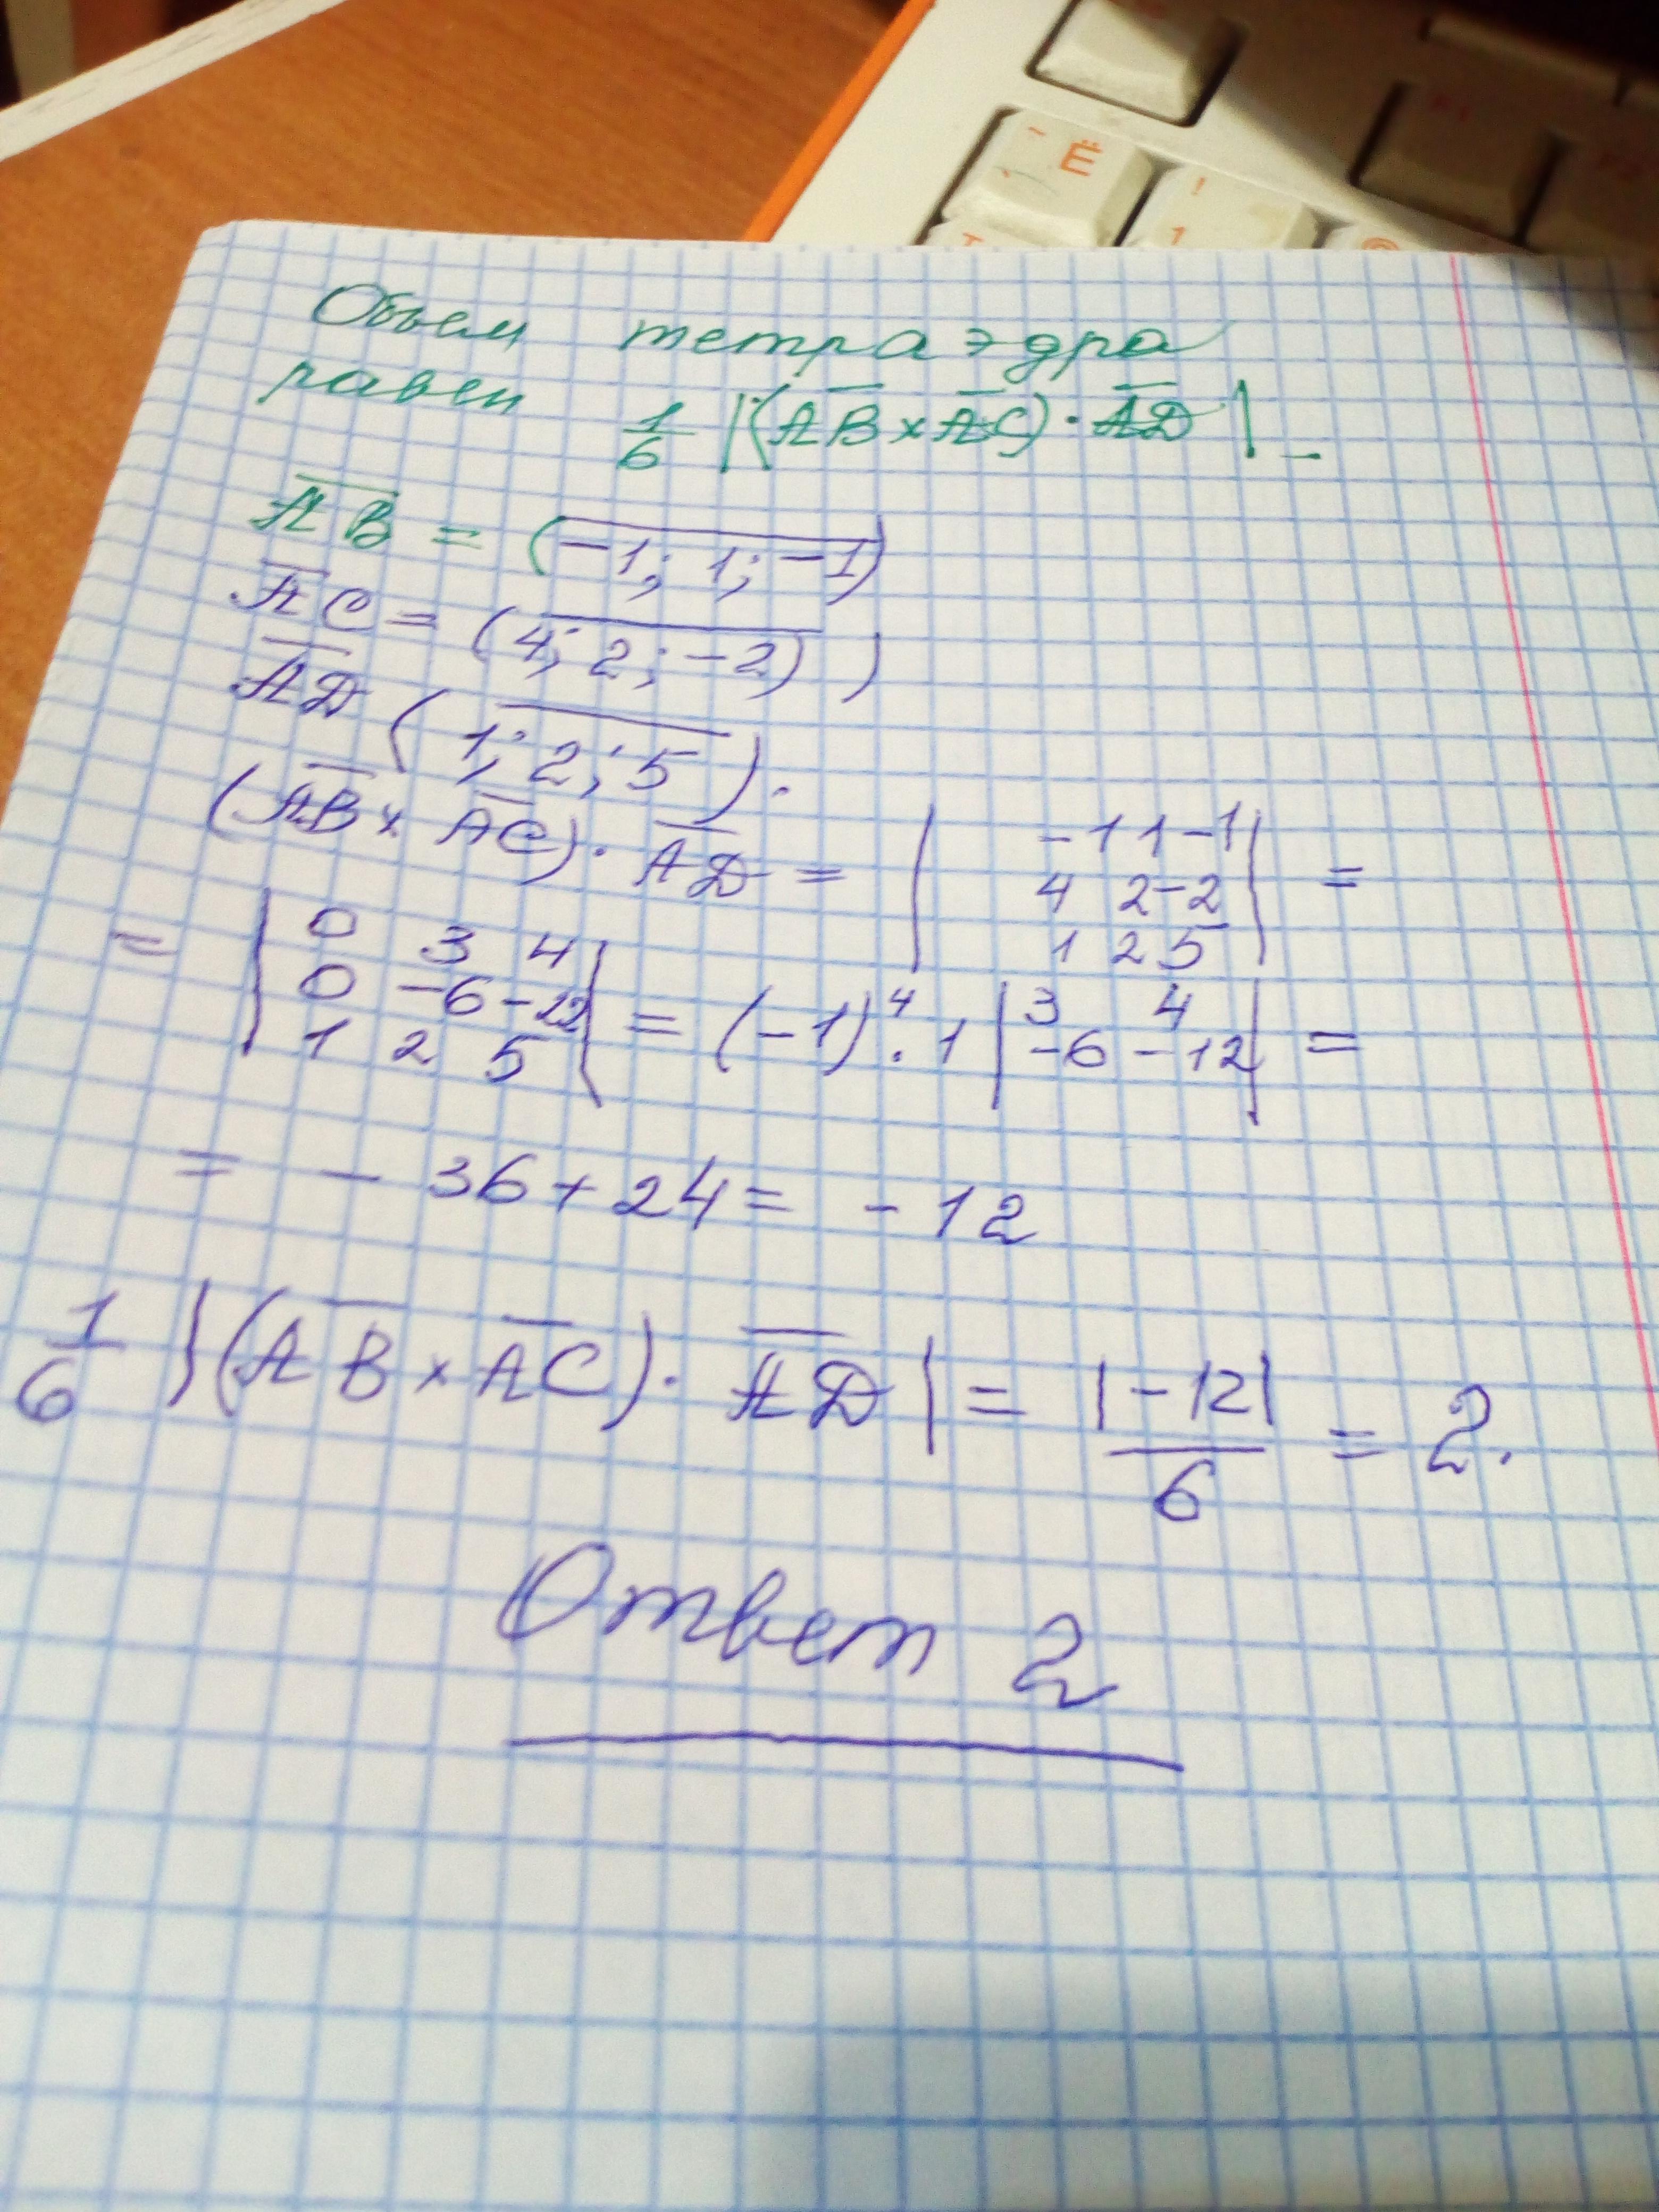 ~
Ё
`
!
1
@
Объем тетраэдра
равен 1/6 |(AB×AC)·AD|
AB = (-1; 1; -1)
AC = (4; 2; -2) )
AD (1; 2; 5).
(AB×AC)·AD = | -1 1 -1 | =
| 4 2 -2 |
| 1 2 5 |
= | 0 3 4 | = (-1)⁴·1 | 3 4 | =
| 0 -6 -12 | | -6 -12 |
| 1 2 5 |
= - 36 + 24 = - 12
1/6 |(AB×AC)·AD| = |-12|/6 = 2.
Ответ 2